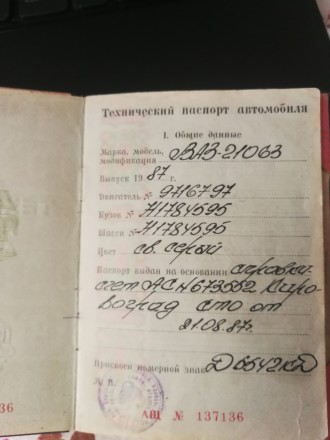 Технический паспорт автомобиля
I. Общие данные
Марка, модель,
модификация ВАЗ-21063
Выпуск 19 87 г.
Двигатель № 9716797
Кузов № Н1784595
Шасси № Н1784595
Цвет св. серый
Паспорт выдан на основании справки-
счет АС N 673552 Киро-
воград СТО от
21.08.87г.
Присвоен номерной знак Д 6542 КД
М. П.
АЩ № 137136
136